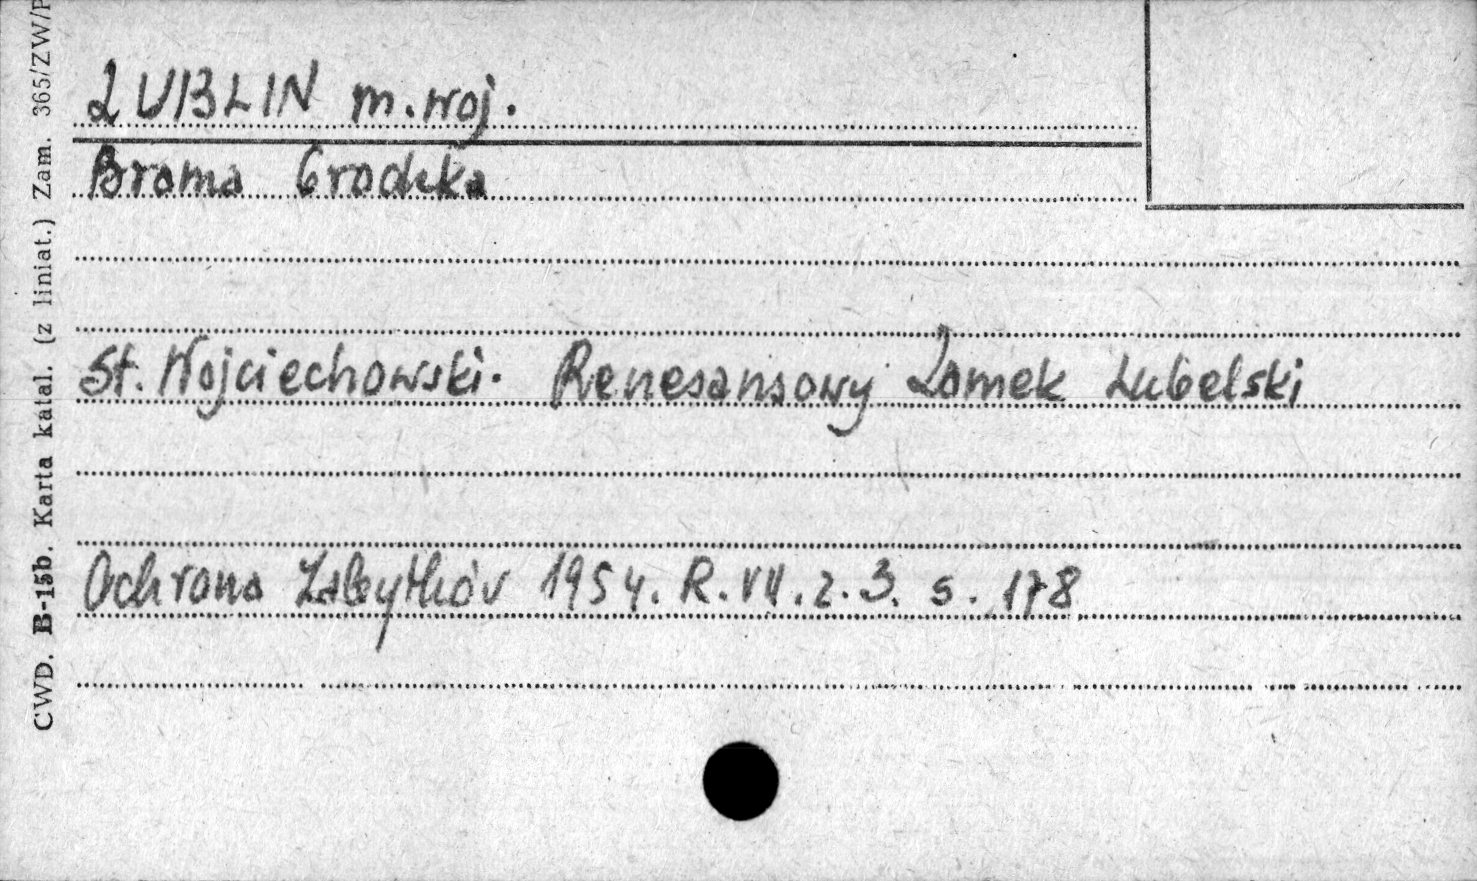 LUBLIN m. woj.
Brama Grodzka
St. Wojciechowski. Renesansowy Zamek Lubelski
Ochrona Zabytków 1954. R. VII. z. 3. s. 178
CWD. B-15b. Karta katal. (z liniat.) Zam. 365/ZW/P